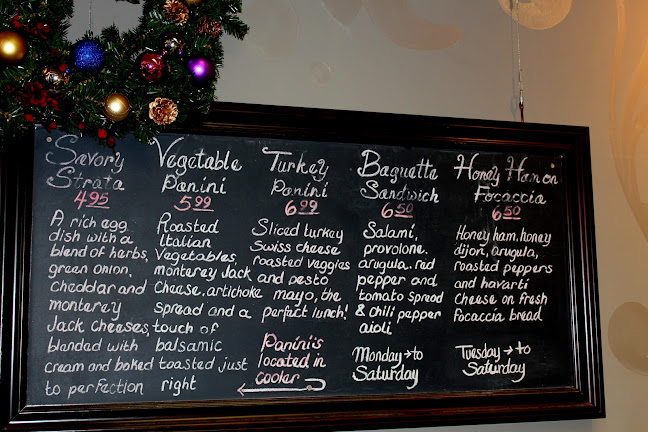 Savory
Strata
4.95
A rich egg
dish with a
blend of herbs,
green onion,
cheddar and
monterey
Jack cheeses,
blended with
cream and baked
to perfection
Vegetable
Panini
5.99
Roasted
Italian
Vegetables,
monterey Jack
Cheese, artichoke
Spread and a
touch of
balsamic
toasted just
right
Turkey
Panini
6.99
Sliced turkey
Swiss cheese
roasted veggies
and pesto
mayo, the
perfect lunch!
Panini's
located in
cooler
Baguette
Sandwich
6.50
Salami,
provolone,
arugula, red
pepper and
tomato spread
& chili pepper
aioli
Monday → to
Saturday
Honey Ham on
Focaccia
6.50
Honey ham, honey
dijon, arugula,
roasted peppers
and havarti
Cheese on fresh
Focaccia bread
Tuesday → to
Saturday